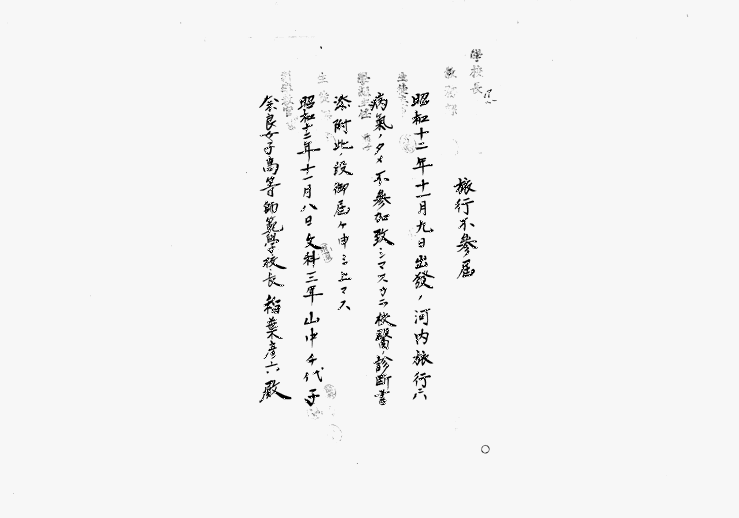 學校長
旅行不參届
昭和十二年十一月九日出發ノ河内旅行ニハ
病氣ノタメ不參加致シマスウエ校醫ノ診断書
添附此ノ段御届ケ申シ上マス
昭和十二年十一月八日文科三年山中千代子
奈良女子高等師範學校長 稲葉彦六殿